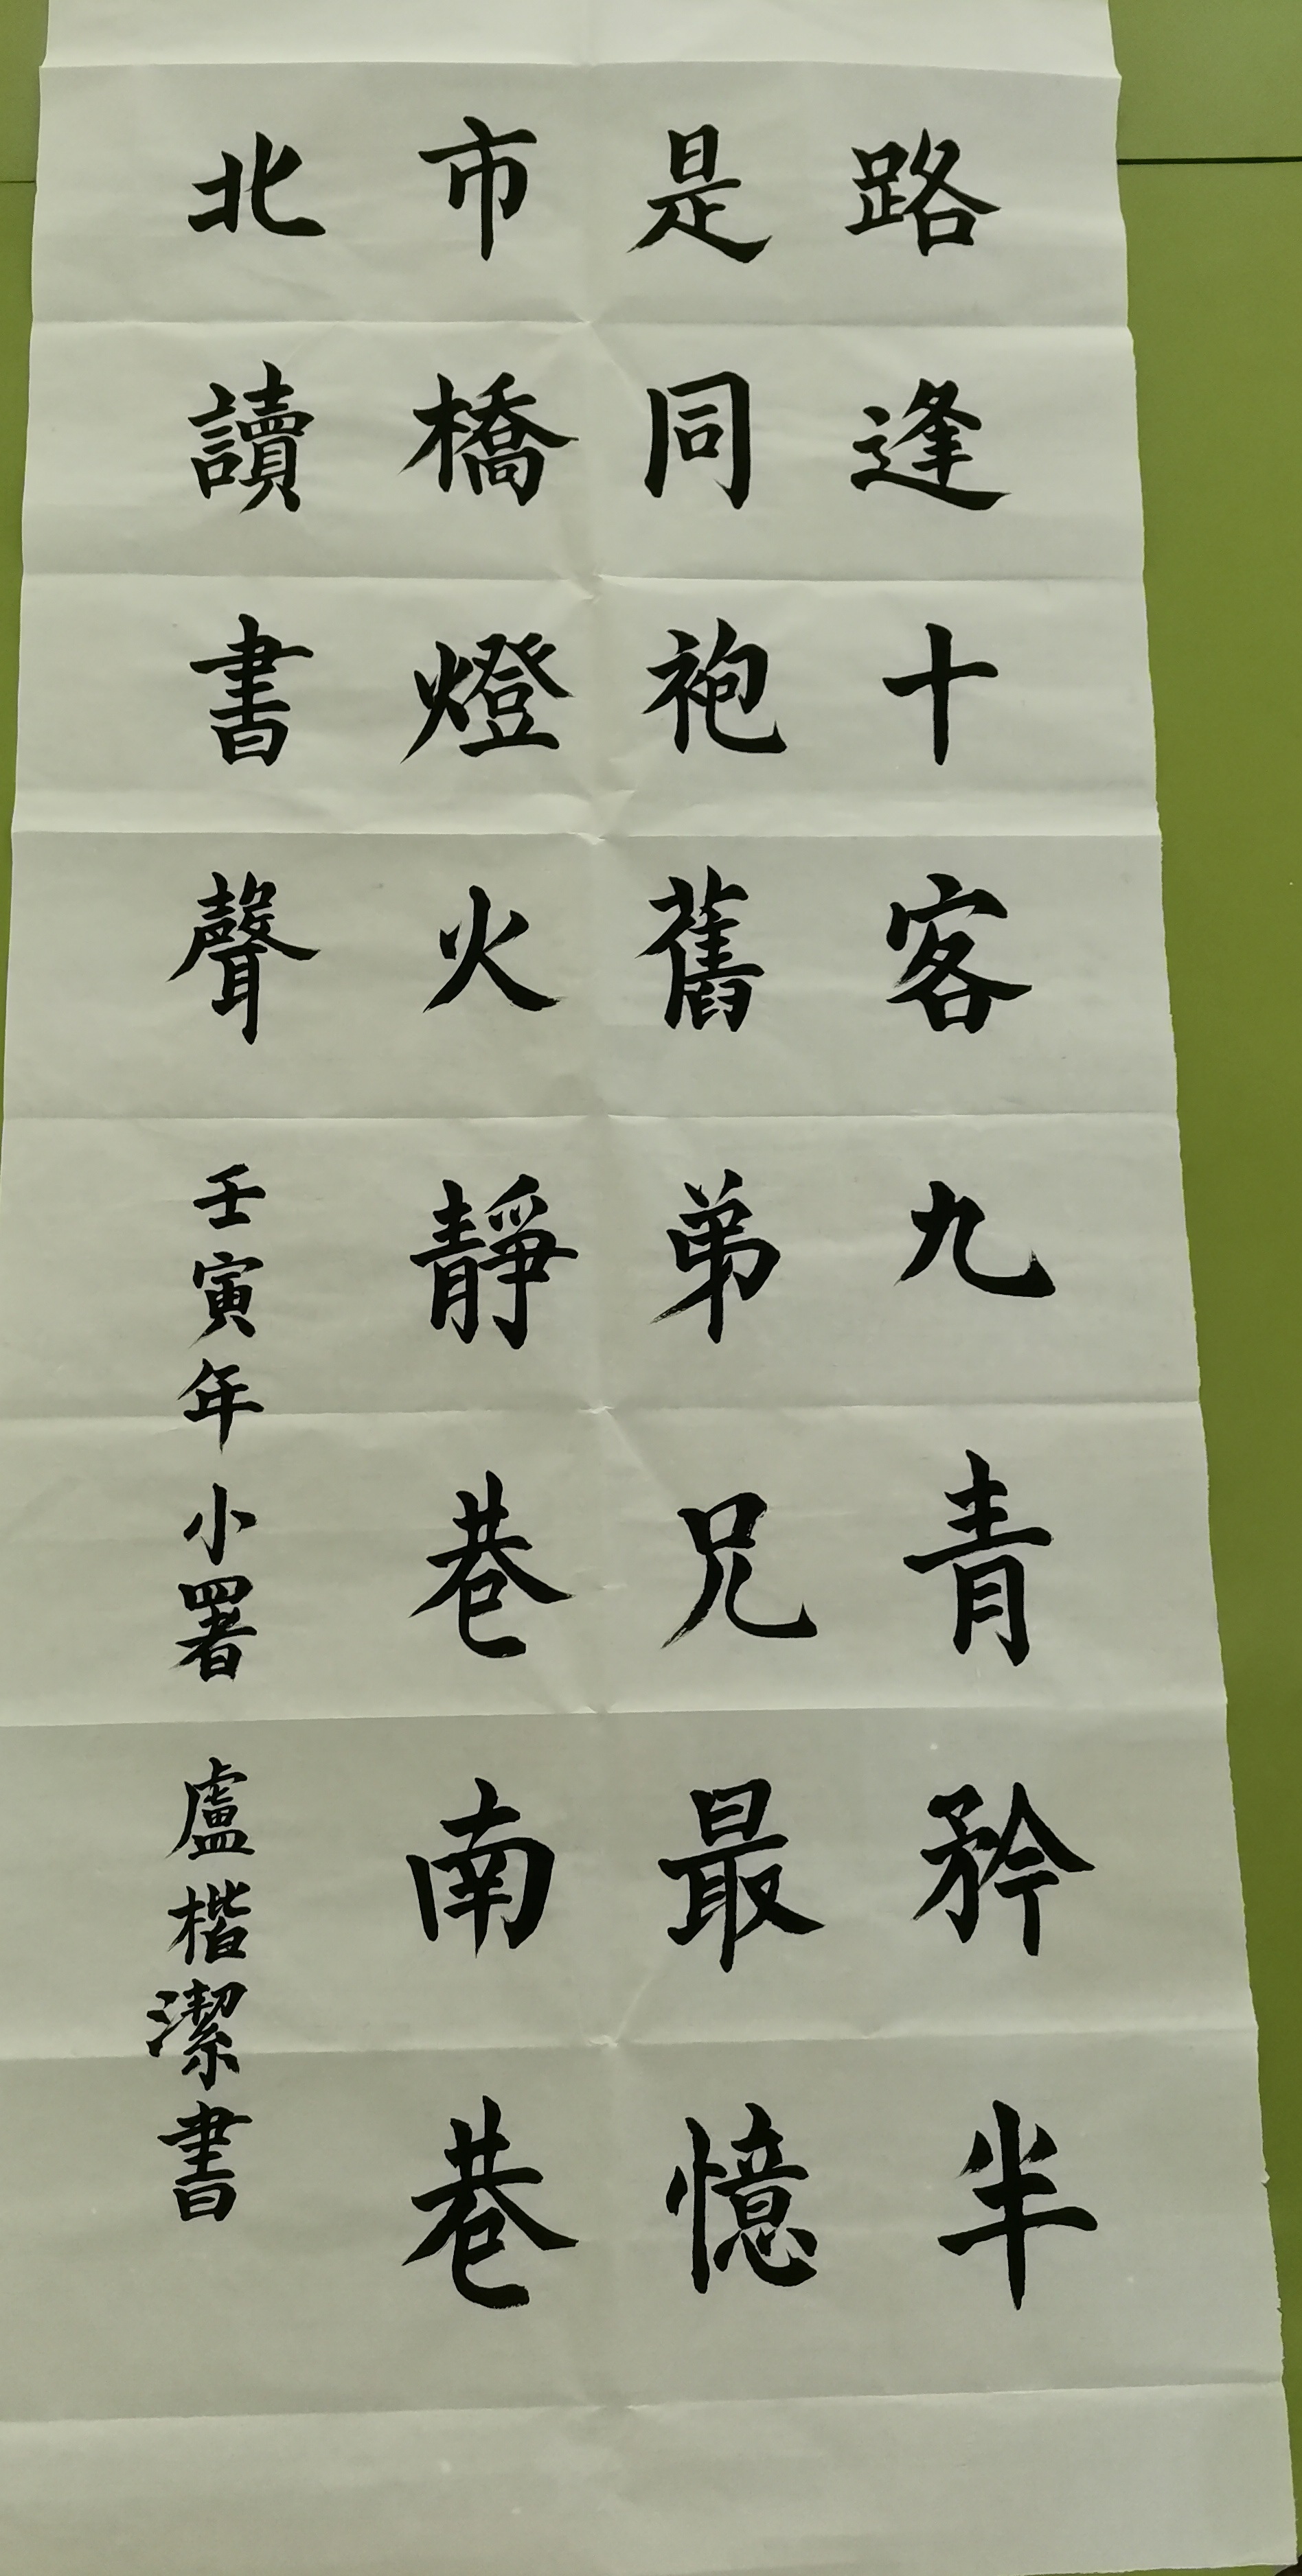 路逢十客九青矜半
是同袍舊弟兄最憶
市橋燈火靜巷南巷
北讀書聲壬寅年小署盧楷潔書